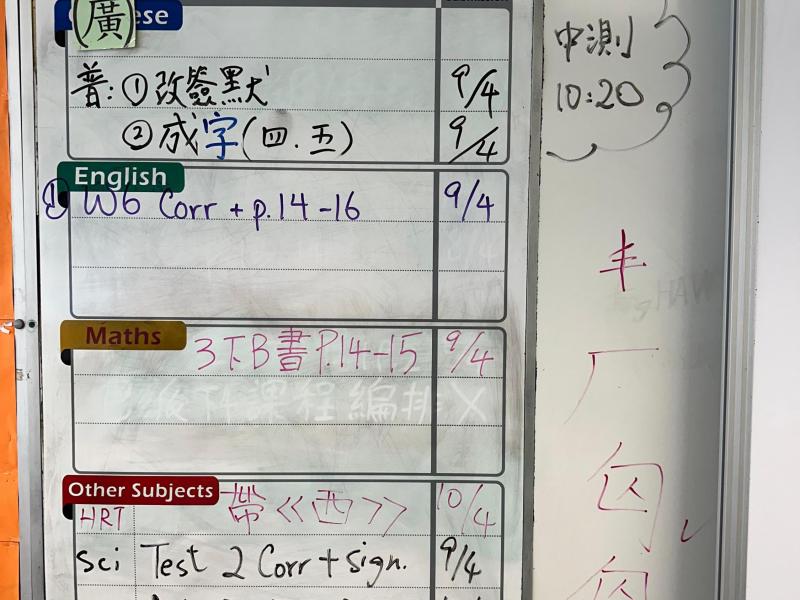 (廣)
ese
普:①改簽默 9/4
②成字(四.五) 9/4
English
① W6 Corr + p.14-16 9/4
Maths
3下B書P.14-15 9/4
Other Subjects
HRT 帶《西》 10/4
Sci Test 2 Corr + sign. 9/4
中測
10:20
丰
厂
囚